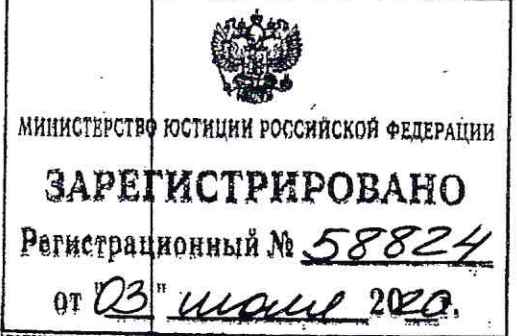 МИНИСТЕРСТВО ЮСТИЦИИ РОССИЙСКОЙ ФЕДЕРАЦИИ
ЗАРЕГИСТРИРОВАНО
Регистрационный № 58824
от "03" июля 2020.